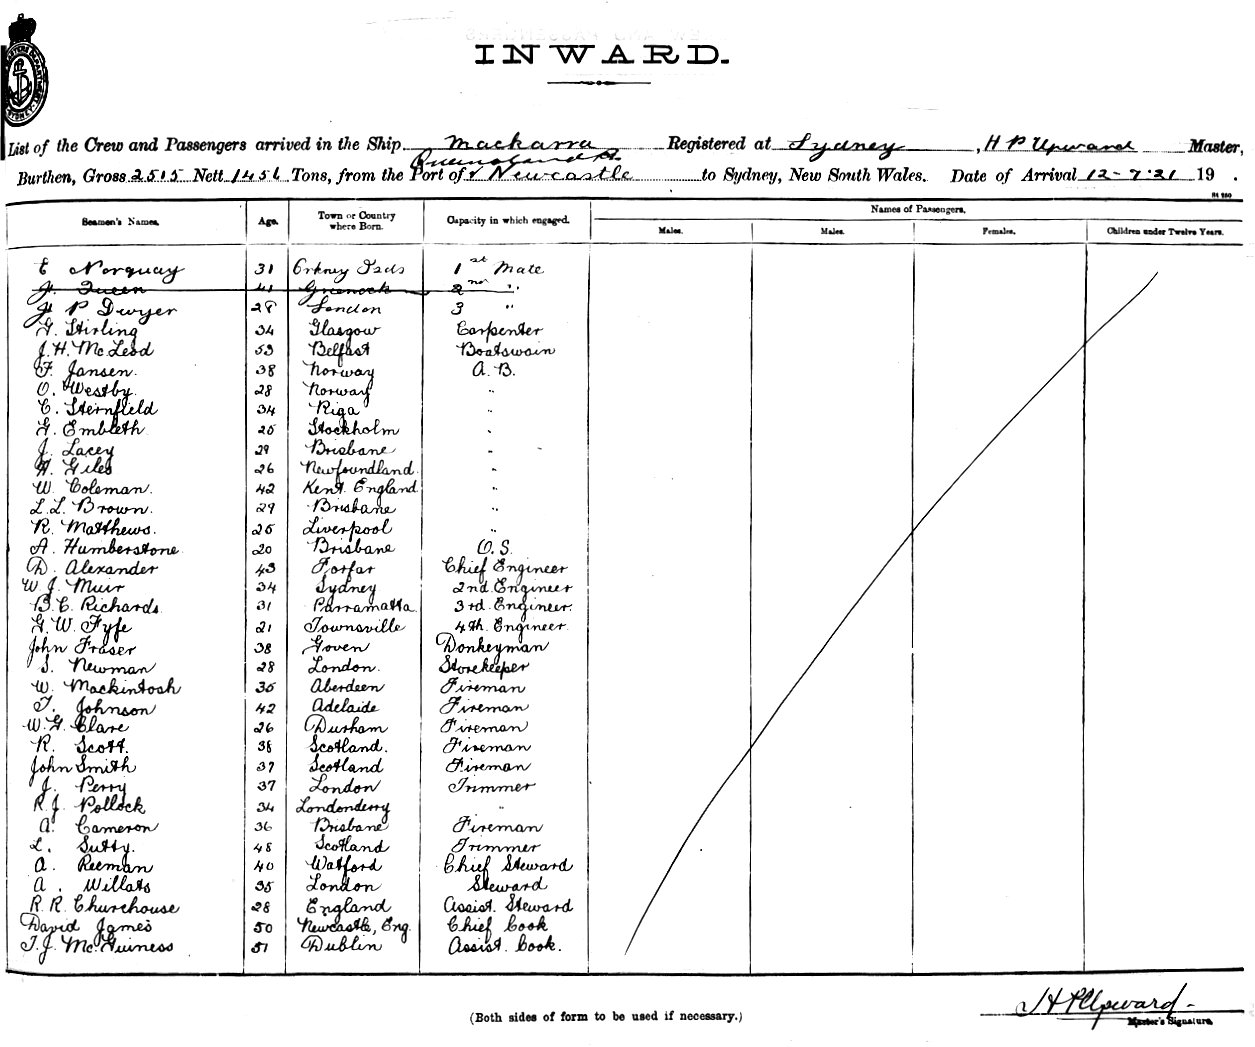 INWARD.
List of the Crew and Passengers arrived in the Ship Mackarra Registered at Sydney, H P Upward Master,
Burthen, Gross 2515 Nett 1456 Tons, from the Port of Queensland & Newcastle to Sydney, New South Wales. Date of Arrival 12-7-21 19 .
Names of Passengers.
Seamen's Names. Age. Town or Country where Born. Capacity in which engaged. Males. Males. Females. Children under Twelve Years.
E Norquay 31 Orkney Isds 1st Mate
J. Queen 41 Greenock 2nd "
J P Dwyer 28 London 3 "
G. Stirling 34 Glasgow Carpenter
J. H. McLeod 53 Belfast Boatswain
F. Jansen. 38 Norway A. B.
O. Westby. 28 Norway "
C. Sternfield 34 Riga "
G. Embleth 25 Stockholm "
J. Lacey 29 Brisbane "
H. Giles 26 Newfoundland. "
W. Coleman. 42 Kent. England "
L. L. Brown. 29 Brisbane "
R. Matthews. 25 Liverpool "
A. Humberstone 20 Brisbane O. S.
D. Alexander 43 Forfar Chief Engineer
W. J. Muir 34 Sydney 2nd Engineer
B. C. Richards. 31 Parramatta 3rd Engineer.
G. W. Fyfe 21 Townsville 4th. Engineer.
John Fraser 38 Goven Donkeyman
S. Newman 28 London. Storekeeper
W. Mackintosh 35 Aberdeen Fireman
T. Johnson 42 Adelaide Fireman
W. G. Clare 26 Durham Fireman
R. Scott. 38 Scotland. Fireman
John Smith 37 Scotland Fireman
J. Perry 37 London Trimmer
R. J. Pollock 34 Londonderry "
A. Cameron 36 Brisbane Fireman
L. Sutty. 48 Scotland Trimmer
A. Reeman 40 Watford Chief Steward
A. Willats 35 London Steward
R. R. Churchouse 28 England Assist. Steward
David James 50 Newcastle, Eng. Chief Cook
T. J. McGuiness 51 Dublin Assist. Cook.
H P Upward
Master's Signature.
(Both sides of form to be used if necessary.)